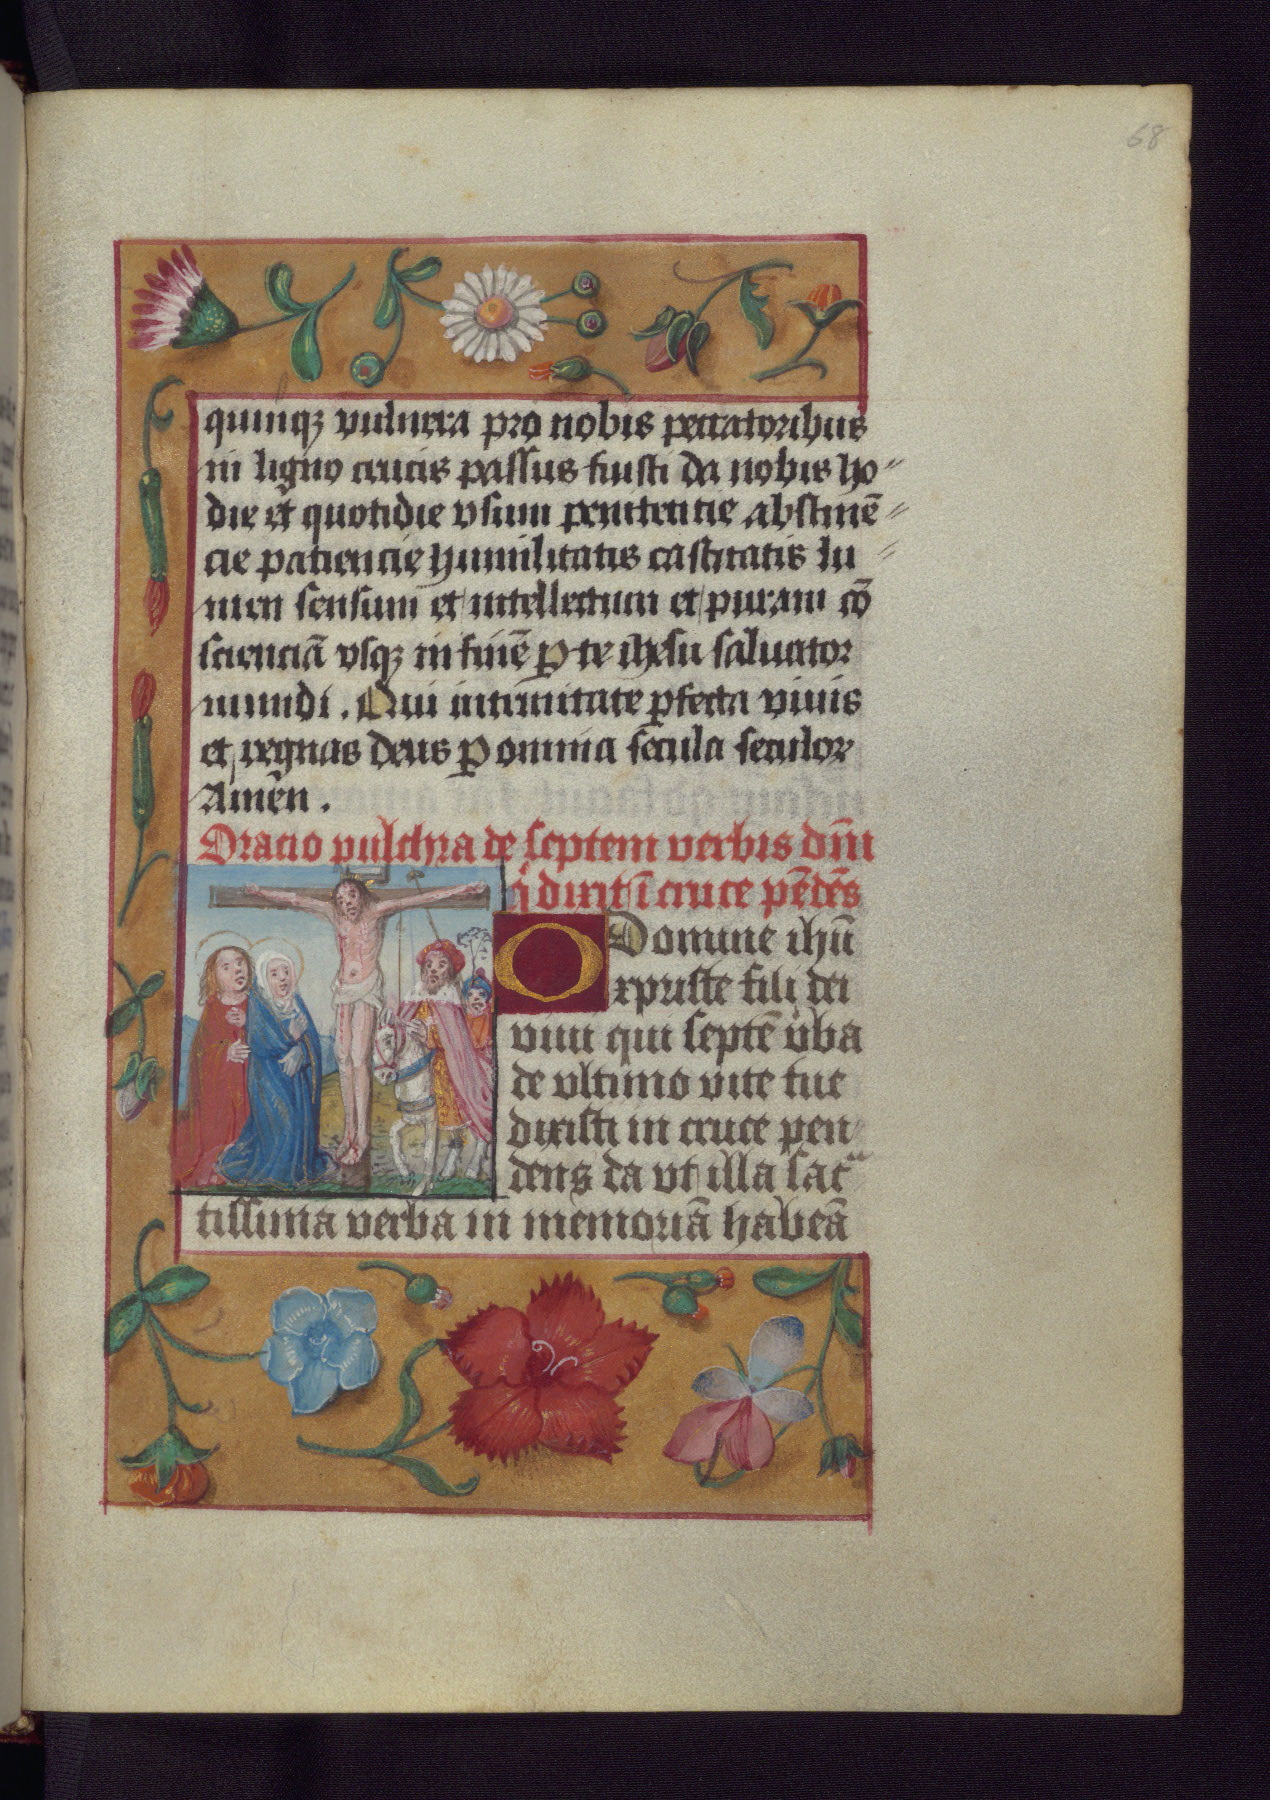 68
quinqꝫ vulnera pro nobis peccatoribus
in ligno crucis passus fuisti da nobis ho〃
die et quotidie vsum penitentie abstinē〃
cie patiencie humilitatis castitatis lu〃
men sensum et intellectum et puram cō
scienciā vsqꝫ in finē ꝑ te ihesu saluator
mundi. Qui in trinitate ꝑfecta viuis
et regnas deus ꝑ omnia secula seculoꝝ
Amen.
Oracio pulchra de septem verbis dn̄i
q̇ dixit ī cruce pēdēs
O Domine ihū
xpriste fili dei
viui qui septē v̉ba
de vltimo vite tue
dixisti in cruce pen
dens da vt illa sac
tissima verba in memoriā habeā